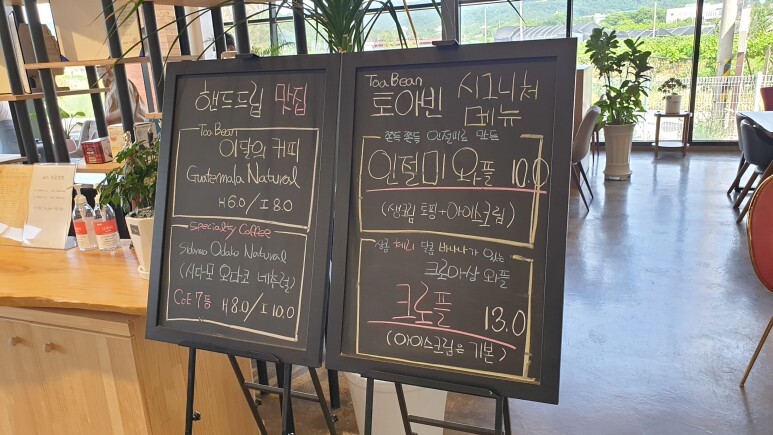 핸드드립 맛집
Toa Bean
이달의 커피
Guatemala Natural
H 6.0 / I 8.0
Specialty Coffee
Sidamo Odako Natural
(시다모 오다코 네추럴)
CoE 7등 H 8.0 / I 10.0
Toa Bean
토아빈 시그니처
메뉴
쫀득 쫀득 인절미로 만든
인절미 와플 10.0
(생크림 토핑+아이스크림)
상콤 체리 달콤 바나나가 있는
크로아상 와플
크로플 13.0
(아이스크림은 기본)